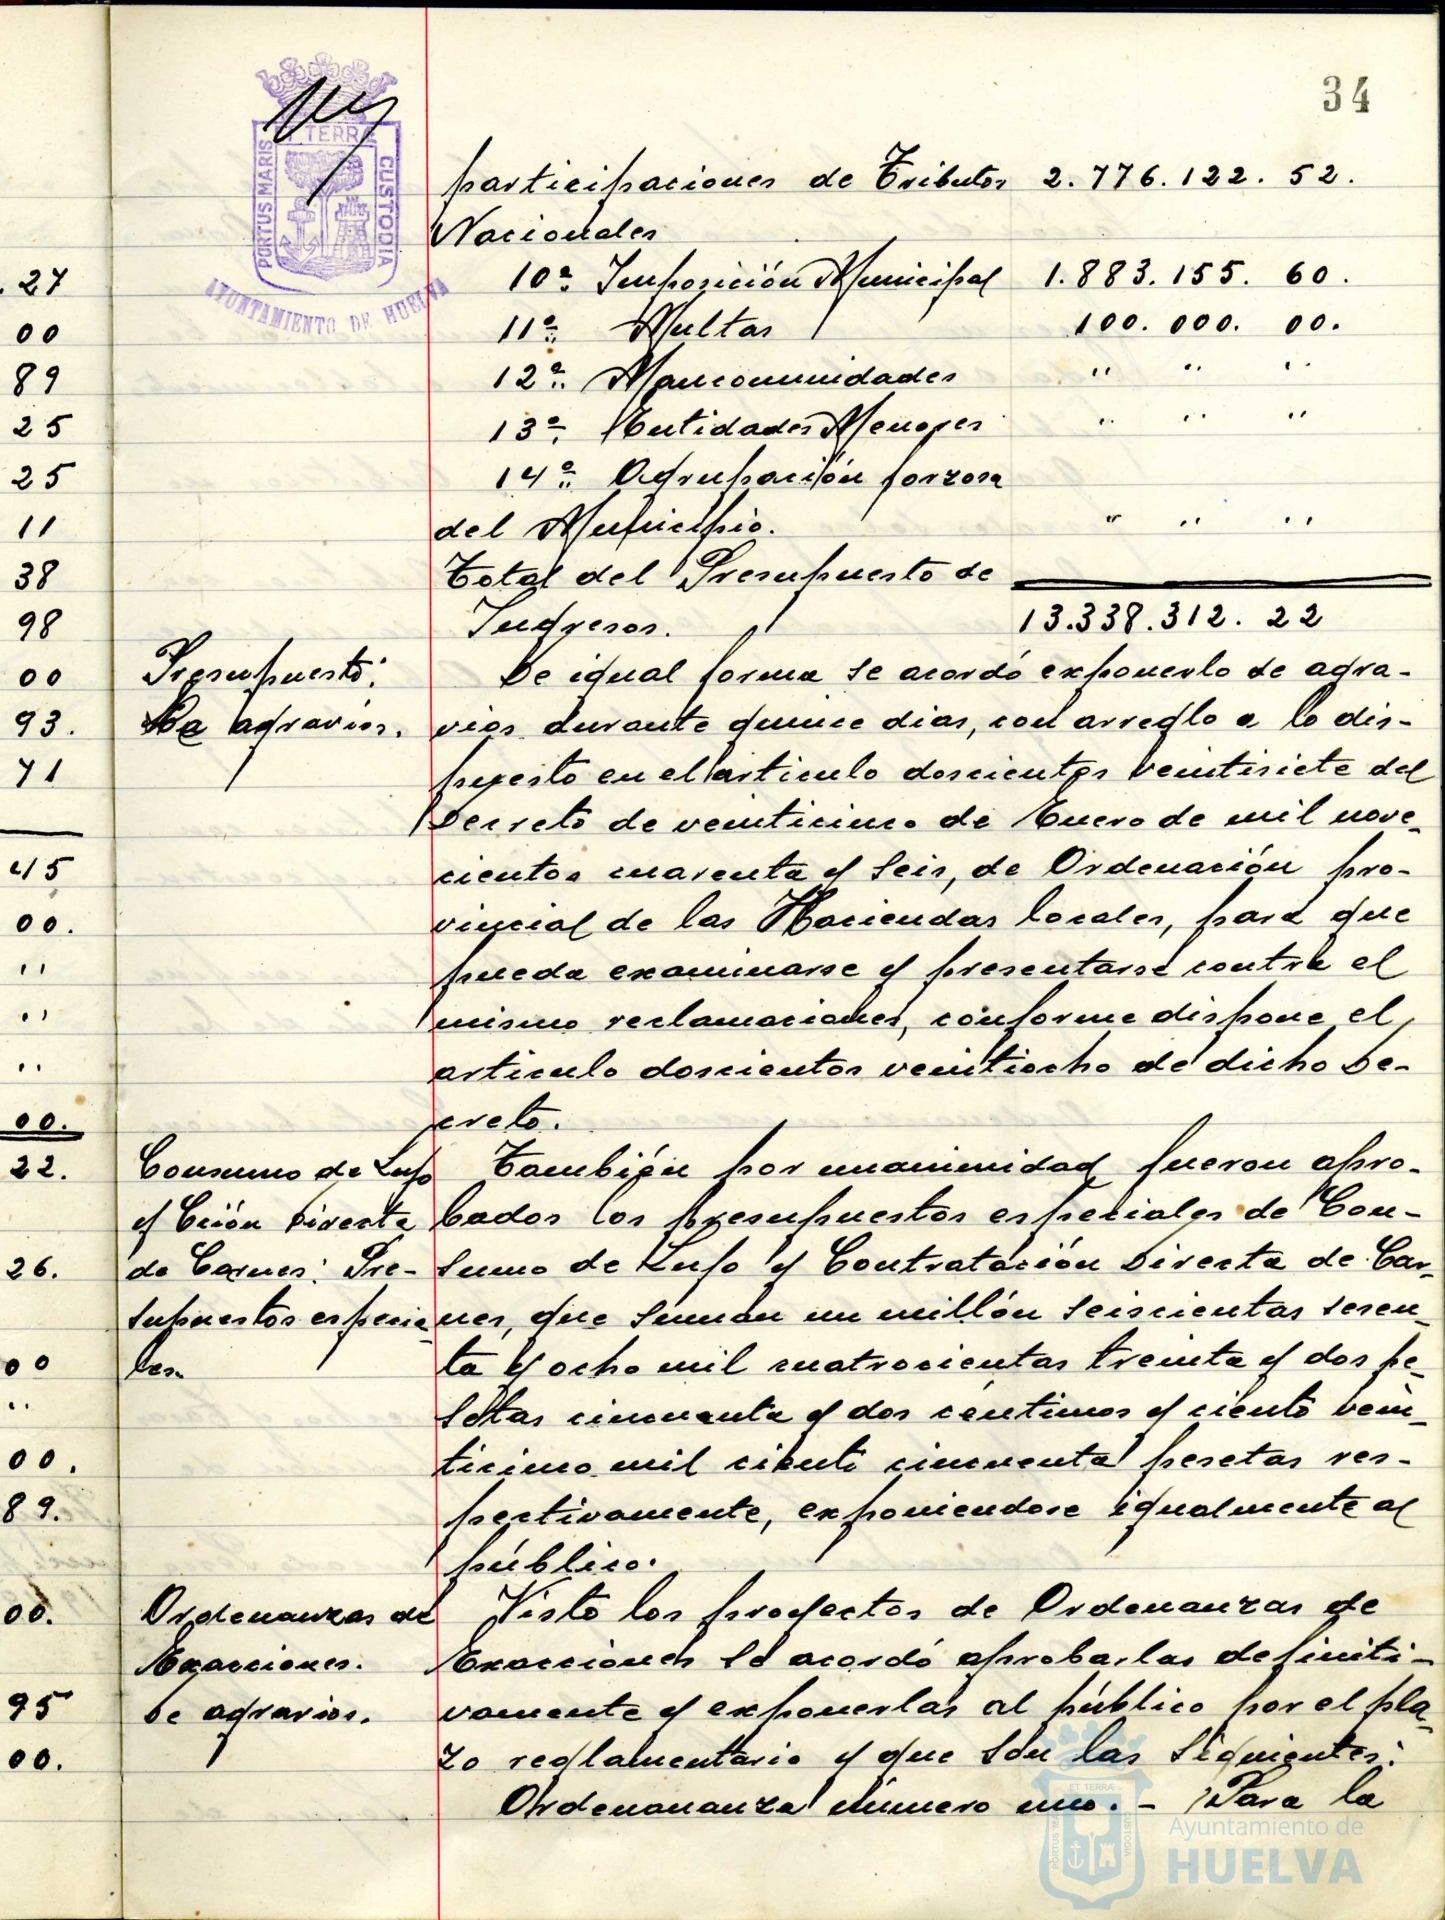 34
ET TERRA
PORTUS MARIS
CUSTODIA
AYUNTAMIENTO DE HUELVA
participaciones de Tributos 2.776.122.52.
Nacionales
10º Imposición Municipal 1.883.155.60.
11º Multas 100.000.00.
12º Mancomunidades " " "
13º Entidades Menores " " "
14º Agrupación forzosa
del Municipio. " " "
Total del Presupuesto de
Ingresos. 13.338.312.22
Presupuesto:
De agravios.
De igual forma se acordó exponerlo de agra-
vios durante quince dias, con arreglo a lo dis-
puesto en el articulo doscientos veintisiete del
Decreto de veinticinco de Enero de mil nove-
cientos cuarenta y seis, de Ordenación pro-
vincial de las Haciendas locales, para que
pueda examinarse y presentarse contra el
mismo reclamaciones, conforme dispone el
articulo doscientos veintiocho de dicho De-
creto.
Consumo de Lujo
y Cción Directa
de Carnes: Pre-
supuestos especia-
les.
También por unanimidad fueron apro-
bados los presupuestos especiales de Con-
sumo de Lujo y Contratación Directa de Car-
nes, que suman un millón seiscientas sesen-
ta y ocho mil cuatrocientas treinta y dos pe-
setas cincuenta y dos céntimos y ciento vein-
ticinco mil ciento cincuenta pesetas res-
pectivamente, exponiendose igualmente al
público.
Ordenanzas de
Exacciones.
De agravios.
Visto los proyectos de Ordenanzas de
Exacciones se acordó aprobarlas definiti-
vamente y exponerlas al público por el pla-
zo reglamentario y que son las siguientes:
Ordenananza número uno.- Para la
.27
00
89
25
25
11
38
98
00
93.
71
45
00.
"
"
"
00.
22.
26.
00
"
00.
89.
00.
95
00.
ET TERRA
PORTUS MARIS
CUSTODIA
Ayuntamiento de
HUELVA